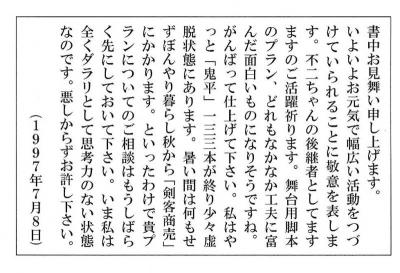 書中お見舞い申し上げます。
いよいよお元気で幅広い活動をつづ
けていられることに敬意を表しま
す。不二ちゃんの後継者としてます
ますのご活躍祈ります。舞台用脚本
のプラン、どれもなかなか工夫に富
んだ面白いものになりそうですね。
がんばって仕上げて下さい。私はや
っと「鬼平」一三三本が終り少々虚
脱状態にあります。暑い間は何もせ
ずぼんやり暮らし秋から「剣客商売」
にかかります。といったわけで貴プ
ランについてのご相談はもうしばら
く先にしておいて下さい。いま私は
全くダラリとして思考力のない状態
なのです。悪しからずお許し下さい。
（１９９７年７月８日）